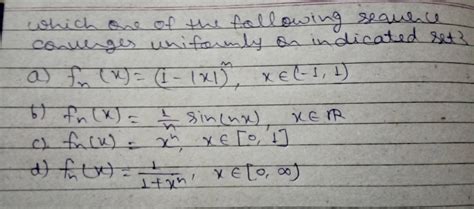 which one of the following sequence
converges uniformly on indicated set?
a) fₙ(x) = (1-|x|)ⁿ, x ∈ (-1, 1)
b) fₙ(x) = 1/n sin(nx), x ∈ ℝ
c) fₙ(x) = xⁿ, x ∈ [0, 1]
d) fₙ(x) = 1/(1+xⁿ), x ∈ [0, ∞)